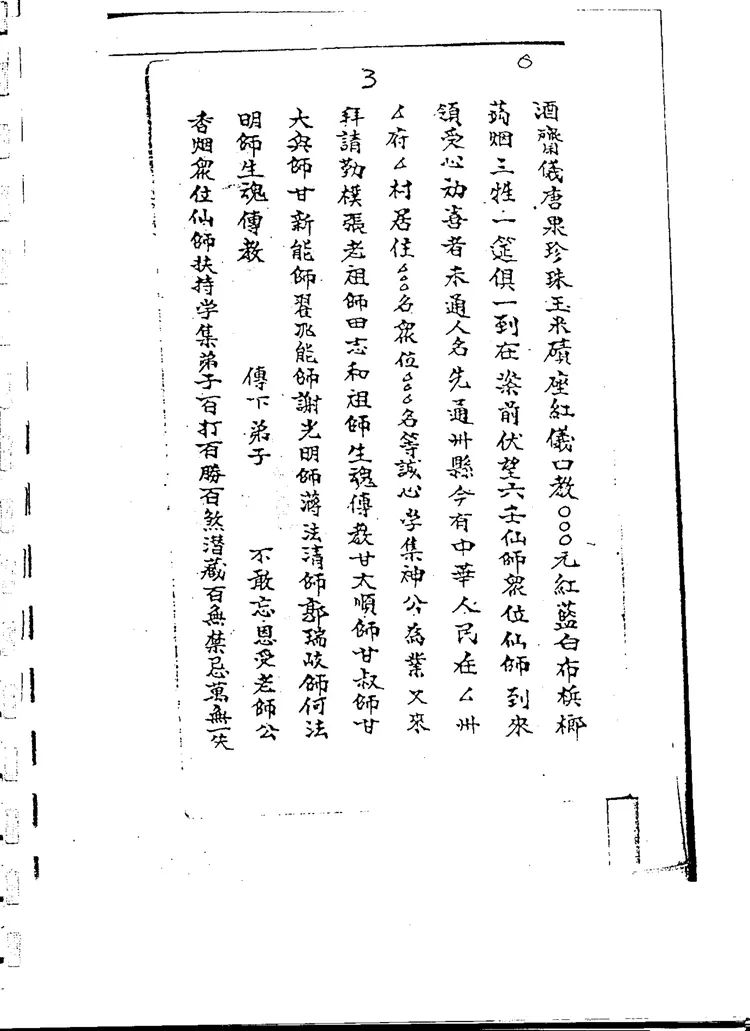 6
3
酒齋儀唐果珍珠玉米磧座紅儀口教〇〇〇元紅藍白布梹榔
蒟烟三牲一筵俱一到在案前伏望六壬仙師眾位仙師到來
領受心动喜者未通人名先通州縣今有中華人民在厶州
厶府厶村居住厶厶厶名眾位厶厶厶名等誠心学集神公為業又來
拜請勤樸張老祖師田志和祖師生魂傳教甘大順師甘叔師甘
大兵師甘新能師翟兆能師謝光明師蔣法清師郭瑞岐師何法
明師生魂傳教 傳下弟子 不敢忘恩受老師公
香烟眾位仙師扶持学集弟子百打百勝百煞潜藏百無禁忌萬無一失